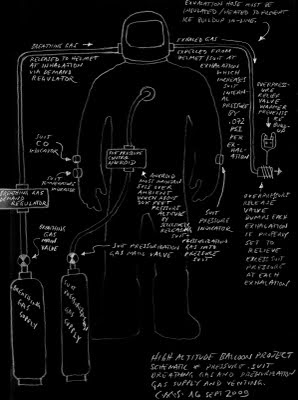 EXHALATION HOSE MUST BE
INSULATED / HEATED TO PREVENT
ICE BUILDUP IN-LINE.
BREATHING GAS
RELEASED TO HELMET
AT INHALATION
VIA DEMAND
REGULATOR
EXHALED GAS
EXPELLED FROM
HELMET/SUIT AT
EXHALATION
WHICH
INCREASES
SUIT
INTERNAL
PRESSURE
BY
.072
PSI
PER
EXHALATION
OVERPRESSURE
RELIEF
VALVE
WARMER
PREVENTS
ICE
BUILDUP
SUIT
CO
INDICATOR
SUIT
TEMPERATURE
INDICATOR
SUIT PRESSURE
CONTROL
ANEROID
ANEROID
MUST
OVER
AMBIENT
WHEN
FEET
PRESSURE
ALTITUDE
BY
RELEASING
SUIT-
PRESSURIZATION
GAS INTO
PRESSURE
SUIT
SUIT
PRESSURE
INDICATOR
BREATHING GAS
DEMAND
REGULATOR
OVERPRESSURE
RELEASE
VALVE
DURING EACH
EXHALATION
IF PROPERLY
SET TO
RELIEVE
EXCESS SUIT
PRESSURE
AT EACH
EXHALATION
BREATHING
GAS
MAIN
VALVE
SUIT PRESSURIZATION
GAS MAIN VALVE
BREATHING
GAS
SUPPLY
SUIT PRESSURIZATION
GAS
SUPPLY
HIGH ALTITUDE BALLOON PROJECT
SCHEMATIC OF PRESSURE SUIT
BREATHING GAS AND PRESSURIZATION
GAS SUPPLY AND VENTING.
16 SEPT 2009